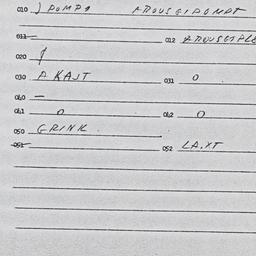 010 ) POMPA
011 012
020
030 A KAST 031 0
040 —
041 0 042 0
050 GRINK
051 052 LA.XT